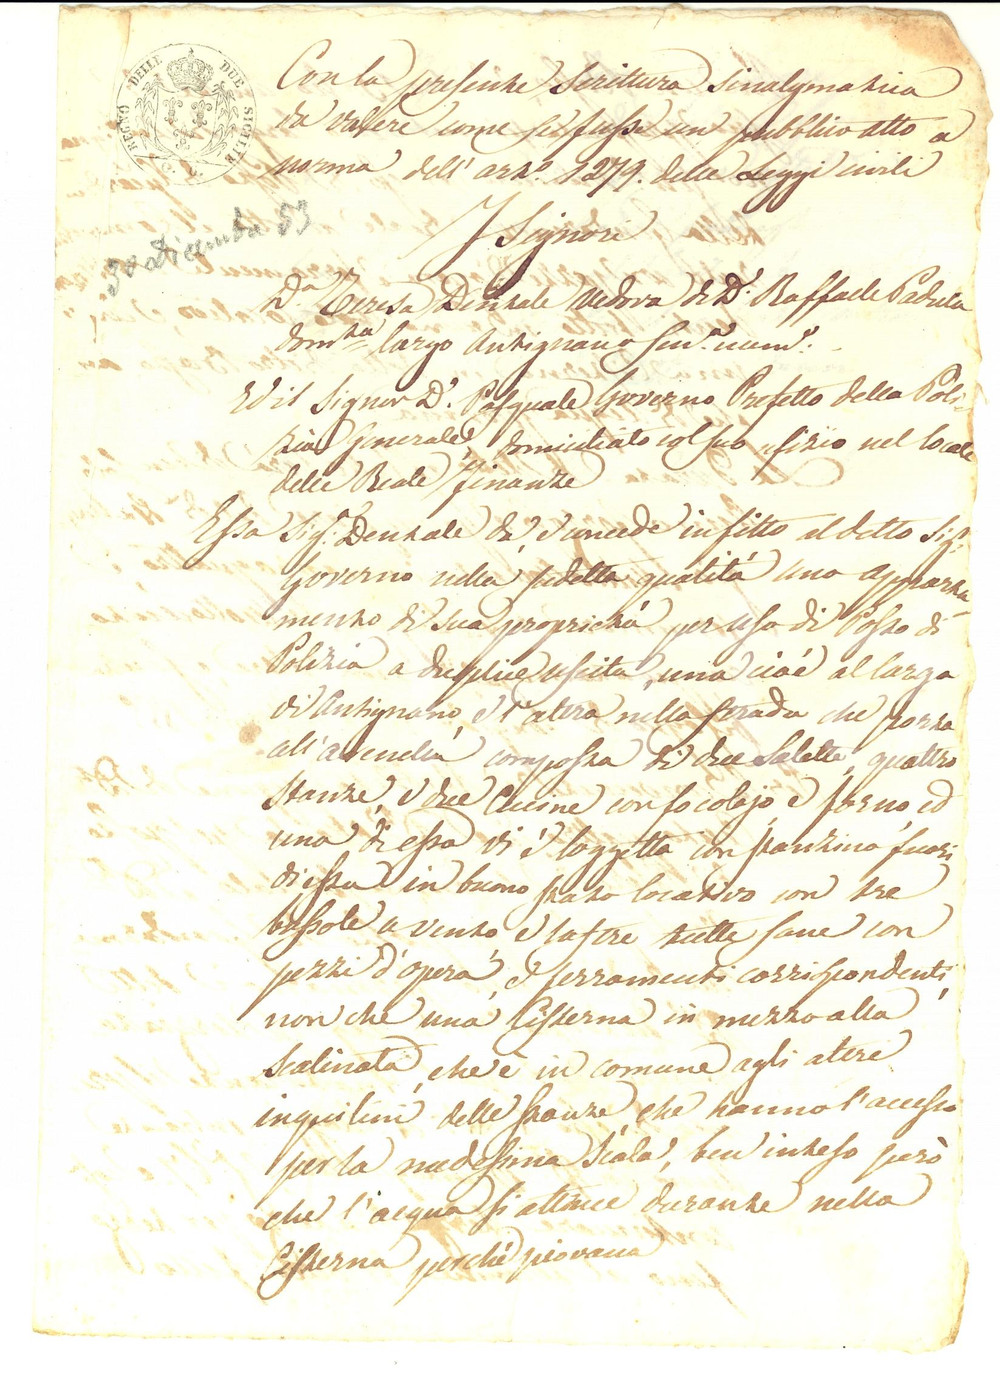 REGNO DELLE DUE SICILIE
30 Dicembre 53
Con la presente Scrittura Sinalgmatica
da valere come se fusse un pubblico atto a
norma dell'art.° 1279. delle Leggi civili
I Signori
D.a Teresa Dentale vedova di D. Raffaele Padula
dom.ta largo Antignano sen.a num.°
Ed il Signor D. Pasquale Governo Prefetto della Poli-
zia Generale, domiciliato col suo ufizio nel locale
delle Reale Finanze
Essa Sig.a Dentale dà e concede in fitto al detto Sig.r
Governo nella sudetta qualità uno apparta-
mento di sua proprietà per uso di Posto di
Polizia a duplice uscita, una cioè al largo
di Antignano, e l'altra nella strada che porta
all' composta di due Salette, quattro
stanze, e due Cucine con focolajo, e forno, ed
una di essa vi è loggetta con stanzino fuori
di essa in buono stato locativo con tre
bussole a vento e lastre tutte sane con
pezzi d'opera, e ferramenti corrispondenti,
non che una Cisterna in mezzo alla
Scalinata, che è in comune agli altri
inquilini delle stanze che hanno l'accesso
per la medessima Scala, ben inteso però
che l'acqua si attince durante nella
Cisterna perché piovana